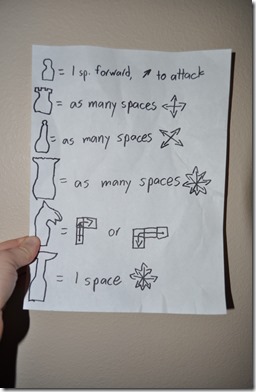 = 1 sp. forward, ↗ to attack
= as many spaces
= as many spaces
= as many spaces
= or
= 1 space